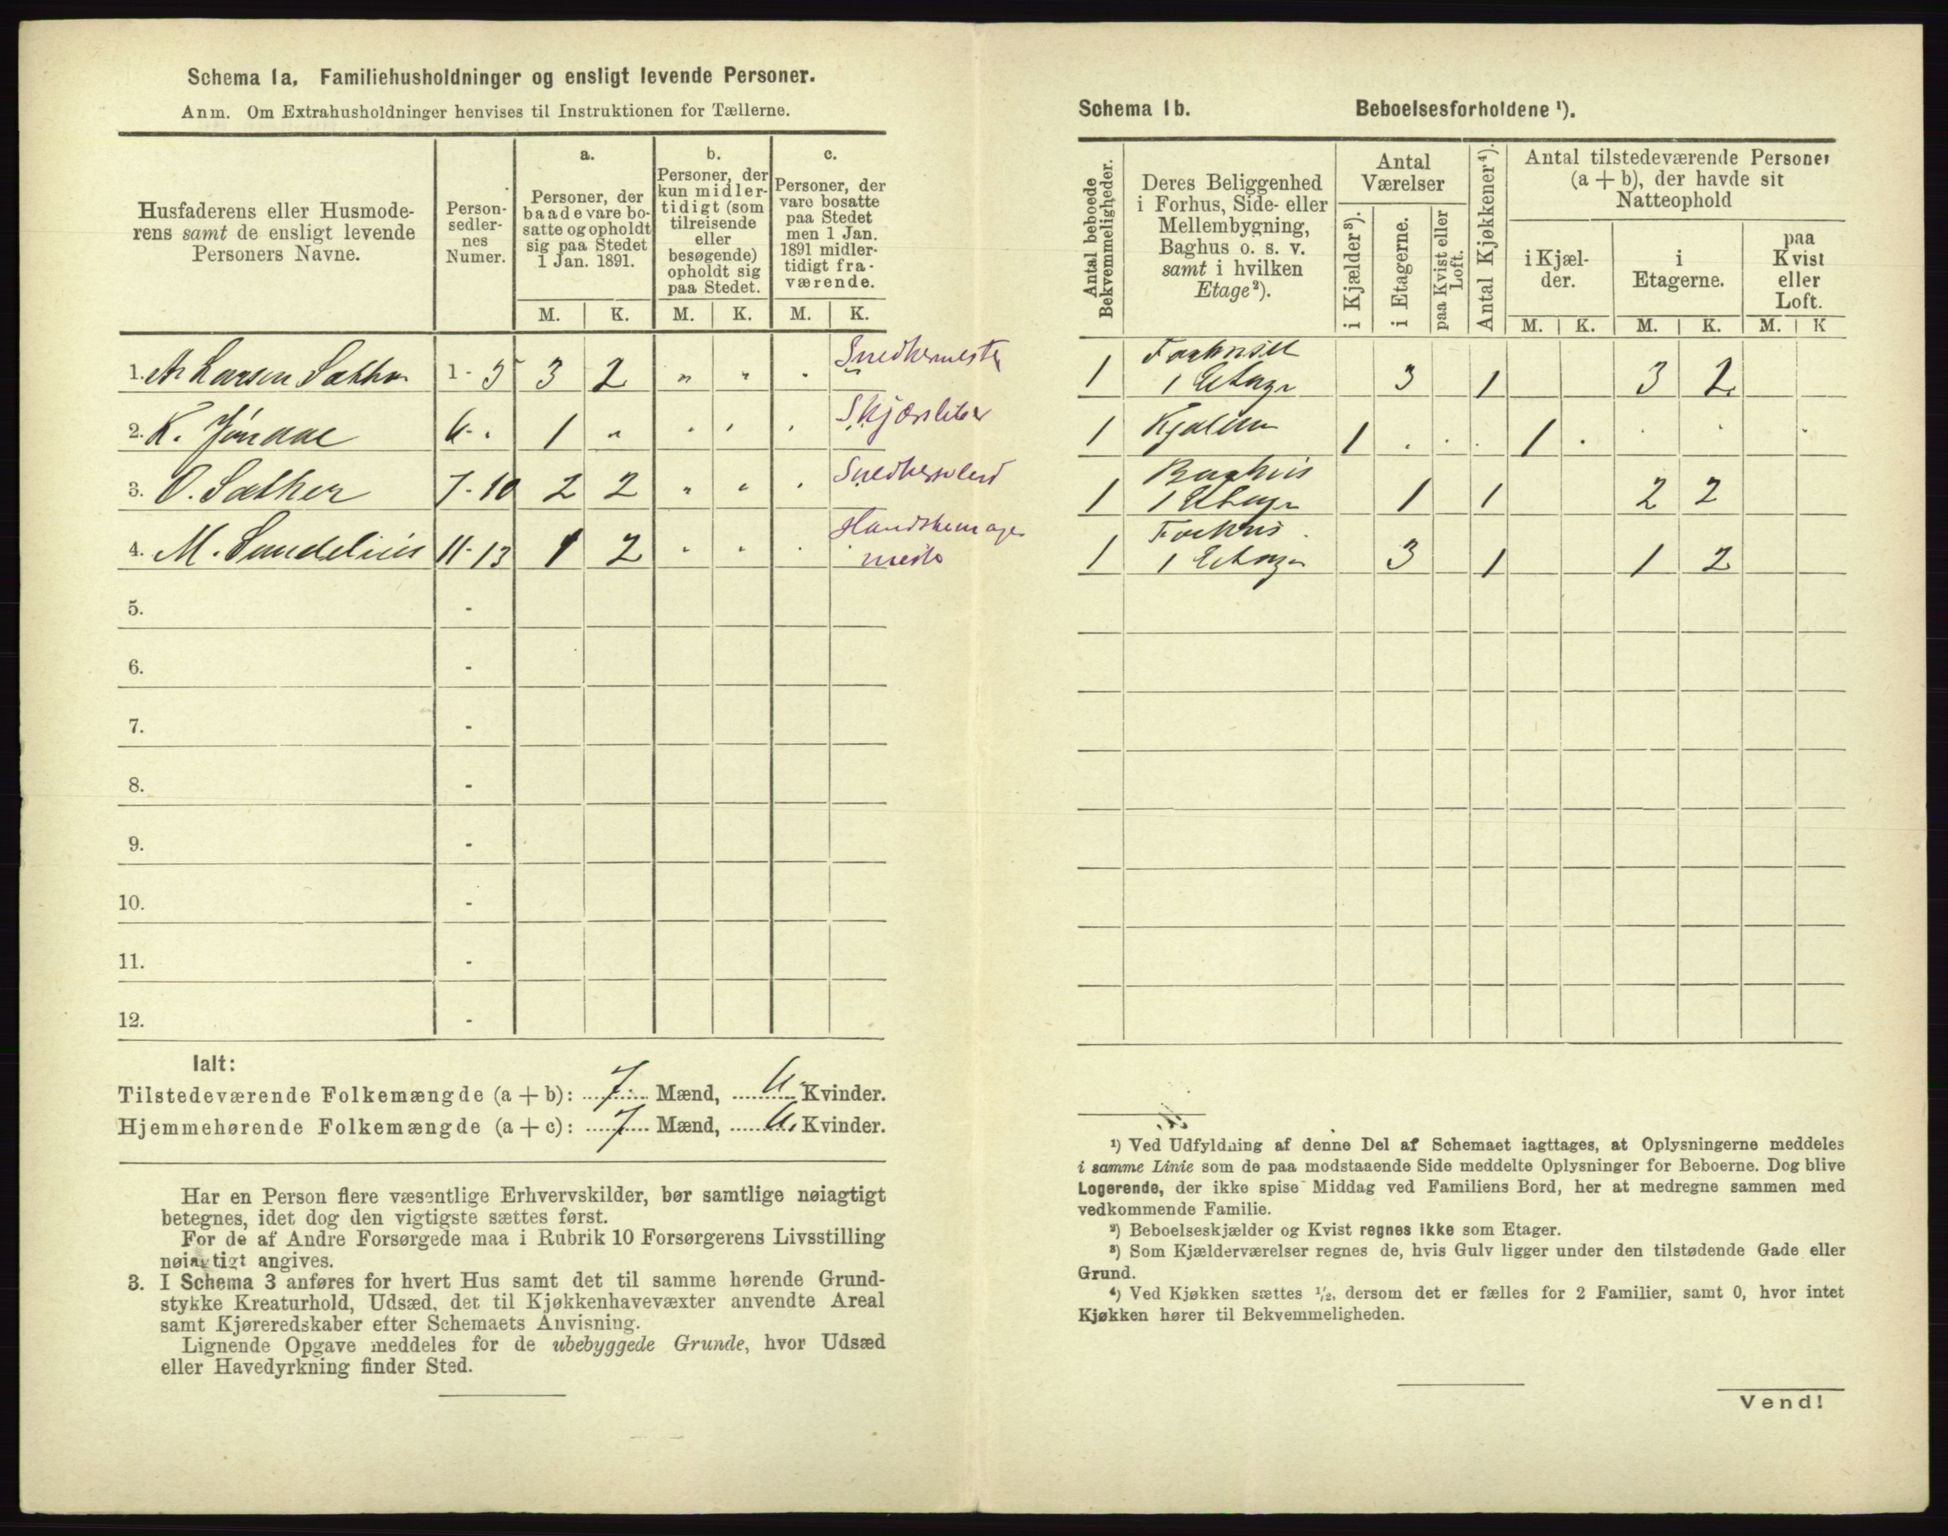 Schema 1a. Familiehusholdninger og ensligt levende Personer.
Anm. Om Extrahusholdninger henvises til Instruktionen for Tællerne.
Husfaderens eller Husmode-
rens samt de ensligt levende
Personers Navne.
Person-
sedler-
nes
Numer.
a.
Personer, der
baade vare bo-
satte og opholdt
sig paa Stedet
1 Jan. 1891.
b.
Personer, der
kun midler-
tidigt (som
tilreisende
eller
besøgende)
opholdt sig
paa Stedet.
c.
Personer, der
vare bosatte
paa Stedet
men 1 Jan.
1891 midler-
tidigt fra-
værende.
M. K. M. K. M. K.
1. A. Larsen Sather 1 - 5 3 2 " " . Snedkermester
2. K. Jøndal 6 - . 1 " . . . Skjærsliber
3. O. Sather 7 - 10 2 2 " " . Snedkersvend
4. M. Sundelius 11 - 13 1 2 " " . Handskemager
mester
5. -
6. -
7. -
8. -
9. -
10. -
11. -
12. -
Ialt:
Tilstedeværende Folkemængde (a + b): 7 Mænd, 6 Kvinder.
Hjemmehørende Folkemængde (a + c): 7 Mænd, 6 Kvinder.
Har en Person flere væsentlige Erhvervskilder, bør samtlige nøiagtigt
betegnes, idet dog den vigtigste sættes først.
For de af Andre Forsørgede maa i Rubrik 10 Forsørgerens Livsstilling
nøiagtigt angives.
3. I Schema 3 anføres for hvert Hus samt det til samme hørende Grund-
stykke Kreaturhold, Udsæd, det til Kjøkkenhavevæxter anvendte Areal
samt Kjøreredskaber efter Schemaets Anvisning.
Lignende Opgave meddeles for de ubebyggede Grunde, hvor Udsæd
eller Havedyrkning finder Sted.
Schema 1b. Beboelsesforholdene ¹).
Antal beboede
Bekvemmeligheder.
Deres Beliggenhed
i Forhus, Side- eller
Mellembygning,
Baghus o. s. v.
samt i hvilken
Etage²).
Antal
Værelser
i Kjælder³).
i Etagerne.
paa Kvist eller
Loft.
Antal Kjøkkener⁴).
Antal tilstedeværende Personer
(a + b), der havde sit
Natteophold
i Kjæl-
der.
i
Etagerne.
paa
Kvist
eller
Loft.
M. K. M. K. M. K
1 Forhuset
1 Etage 3 1 3 2
1 Kjelder 1 . . . 1 . . . .
1 Baghus
1 Etage 1 1 2 2
1 Forhus
1 Etage 3 1 1 2
¹) Ved Udfyldning af denne Del af Schemaet iagttages, at Oplysningerne meddeles
i samme Linie som de paa modstaaende Side meddelte Oplysninger for Beboerne. Dog blive
Logerende, der ikke spise Middag ved Familiens Bord, her at medregne sammen med
vedkommende Familie.
²) Beboelseskjælder og Kvist regnes ikke som Etager.
³) Som Kjælderværelser regnes de, hvis Gulv ligger under den tilstødende Gade eller
Grund.
⁴) Ved Kjøkken sættes ½, dersom det er fælles for 2 Familier, samt 0, hvor intet
Kjøkken hører til Bekvemmeligheden.
Vend!